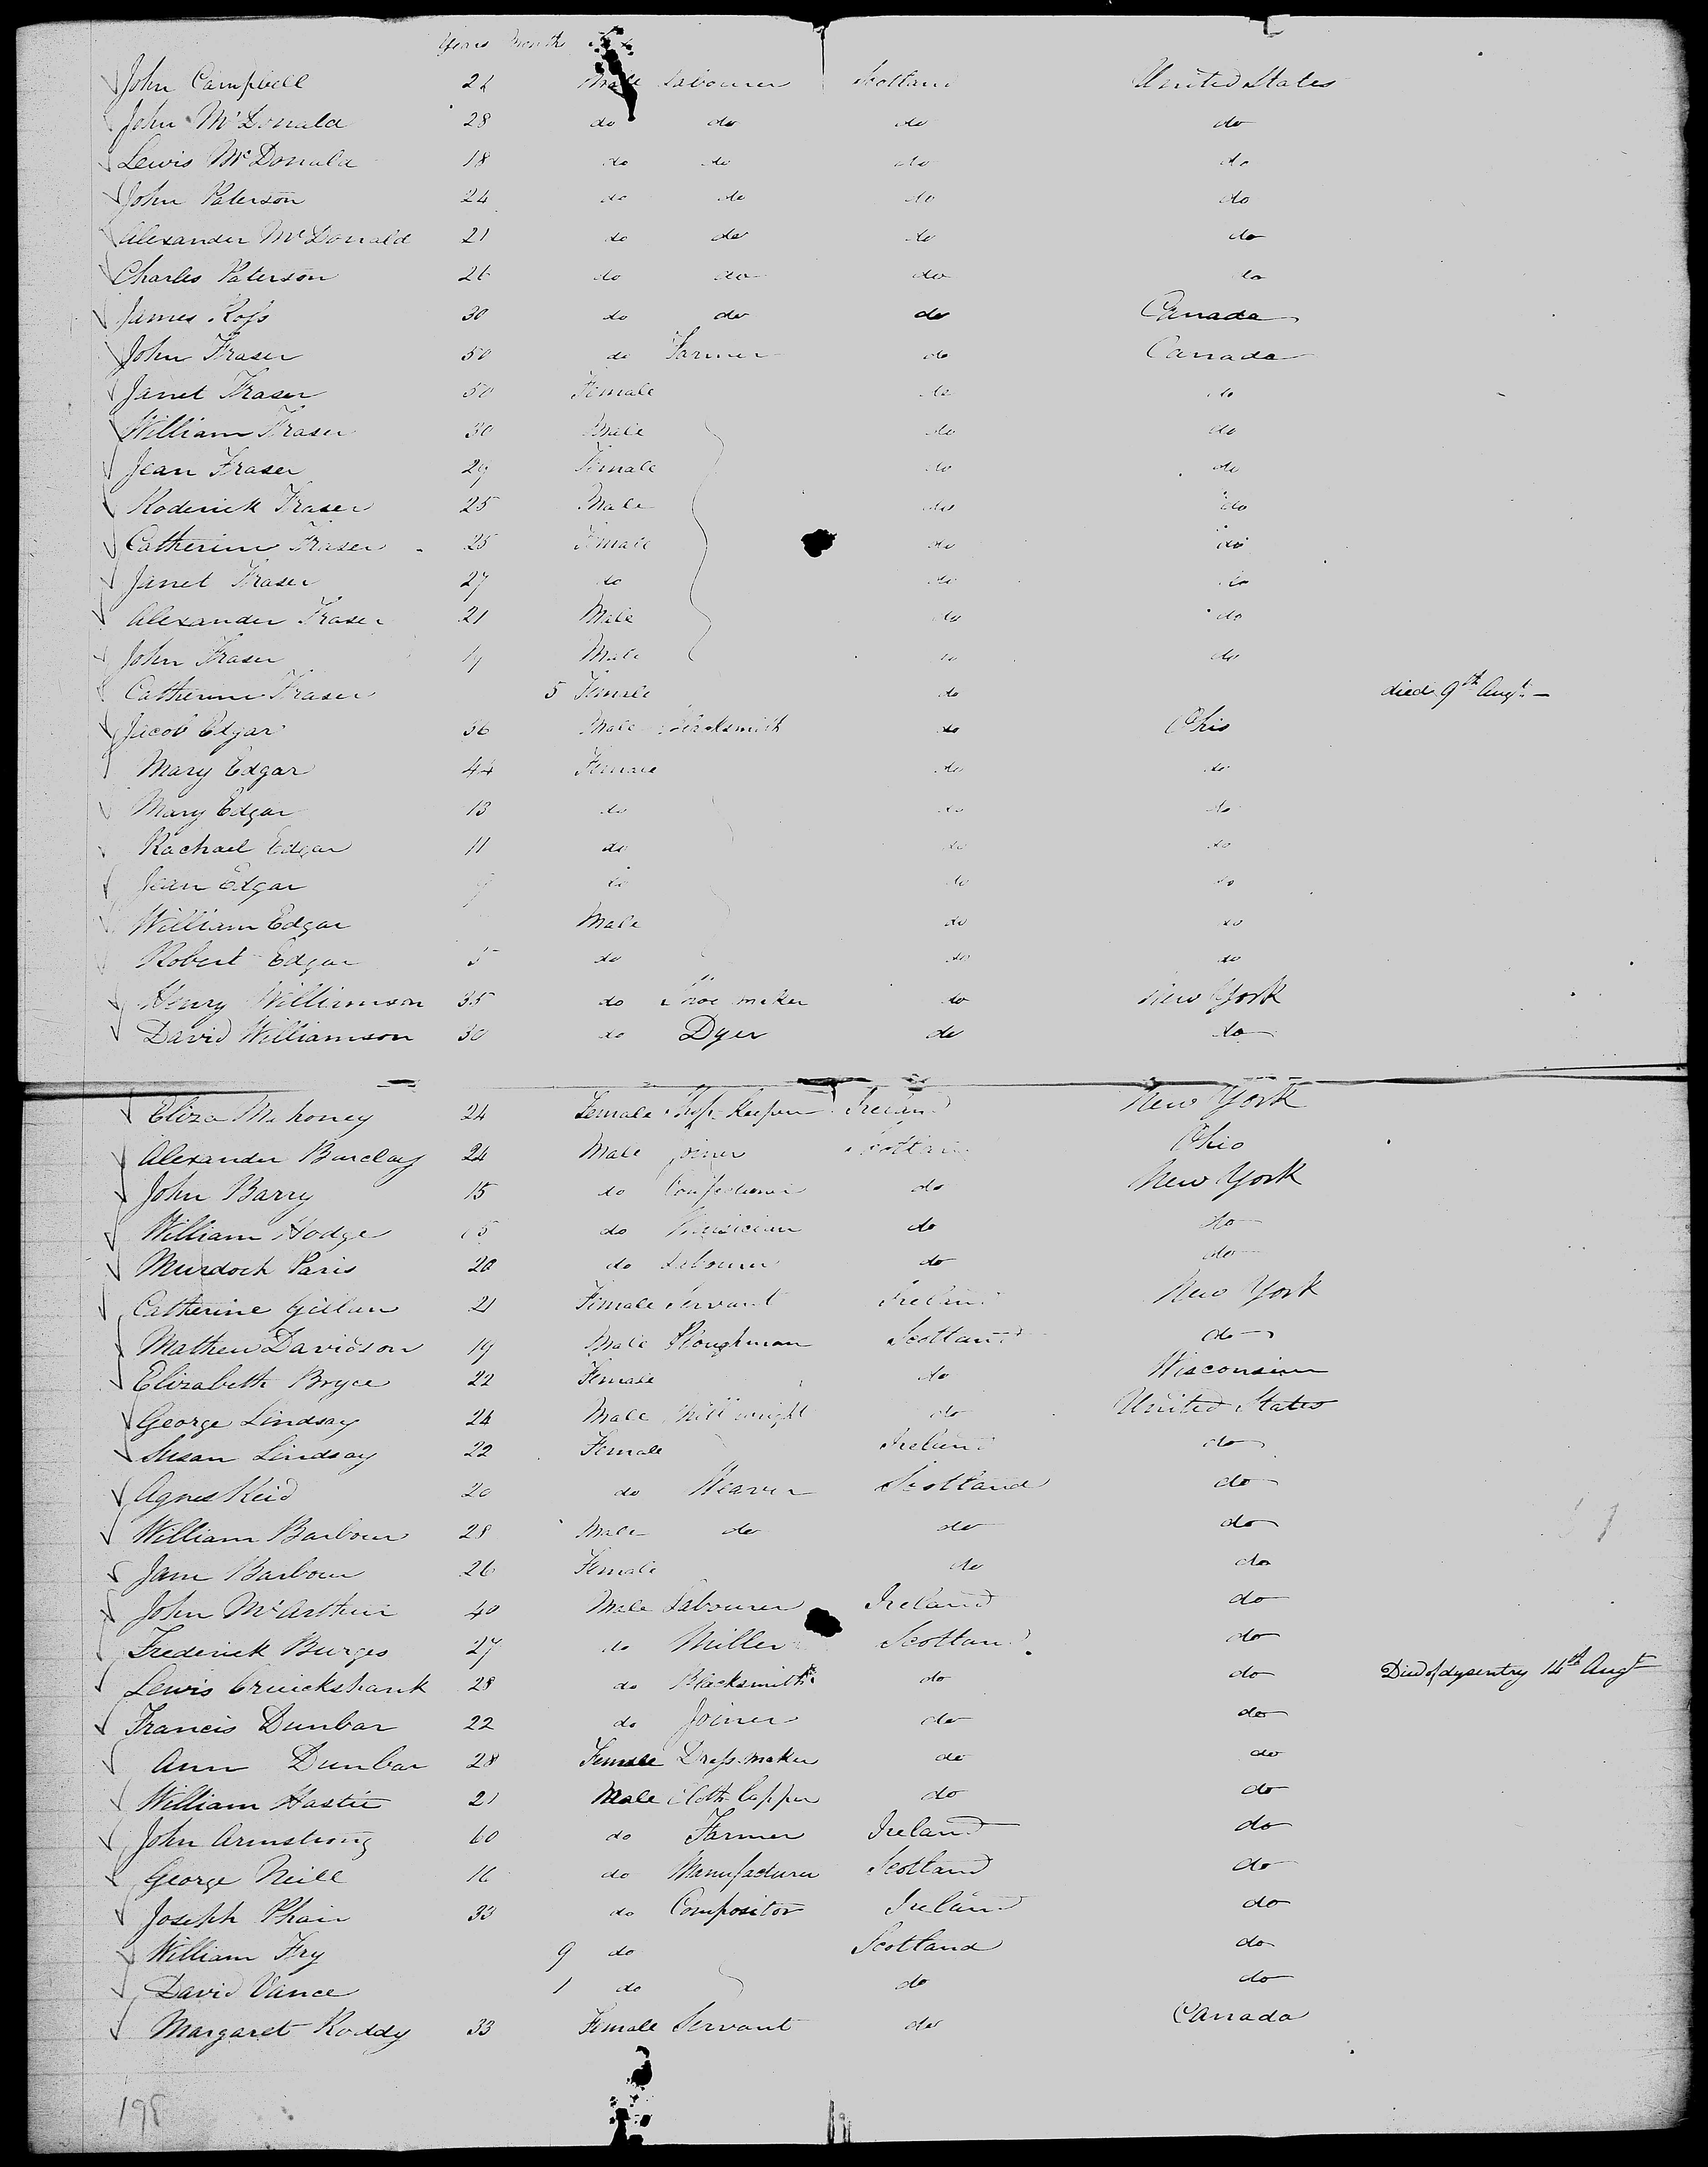 Years Month
John Campbell Male Labourer Scotland United States
John McDonald 28 do do do do
Lewis McDonald 18 do do do do
John Paterson 24 do do do do
Alexander McDonald 21 do do do do
Charles Paterson 26 do do do do
James Ross 30 do do do Canada
John Fraser 50 do Farmer do Canada
Janet Fraser 50 Female do do
William Fraser 30 Male do do
Jean Fraser 29 Female do do
Roderick Fraser 25 Male do do
Catherine Fraser 25 Female do do
Janet Fraser 27 do do do
Alexander Fraser 21 Male do do
John Fraser 19 Male do do
Catherine Fraser 5 Female do died 9th Augt
Jacob Edgar 36 Male Blacksmith do Ohio
Mary Edgar 44 Female do do
Mary Edgar 13 do do do
Rachael Edgar 11 do do do
Jean Edgar 9 do do do
William Edgar Male do do
Robert Edgar 5 do do do
Henry Williamson 35 do Shoe maker do New York
David Williamson 30 do Dyer do do
Eliza Mahoney 24 Female Shop Keeper Ireland New York
Alexander Barclay 24 Male Joiner Scotland Ohio
John Barry 15 do Confectioner do New York
William Hodge do Musician do do
Murdoch Paris 20 do Labourer do do
Catherine Gillan 21 Female Servant Ireland New York
Mathew Davidson 19 Male Ploughman Scotland do
Elizabeth Bryce 22 Female do Wisconsin
George Lindsay 24 Male Mill wright do United States
Susan Lindsay 22 Female Ireland do
Agnes Reid 20 do Weaver Scotland do
William Barbour 28 Male do do do
Jane Barbour 26 Female do do
John McArthur 40 Male Labourer Ireland do
Frederick Burges 27 do Miller Scotland do
Lewis Cruickshank 28 do Blacksmith do do Died of dysentry 14th Augt
Francis Dunbar 22 do Joiner do do
Ann Dunbar 28 Female Dress maker do do
William Hastie 21 Male Cloth lapper do do
John Armstrong 60 do Farmer Ireland do
George Neill 16 do Manufacturer Scotland do
Joseph Phair 33 do Compositor Ireland do
William Fry 9 do Scotland do
David Vance 1 do do do
Margaret Roddy 33 Female Servant do Canada
198